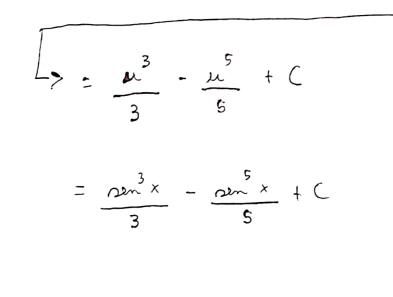 = u³/3 - u⁵/5 + C
= sen³x/3 - sen⁵x/5 + C